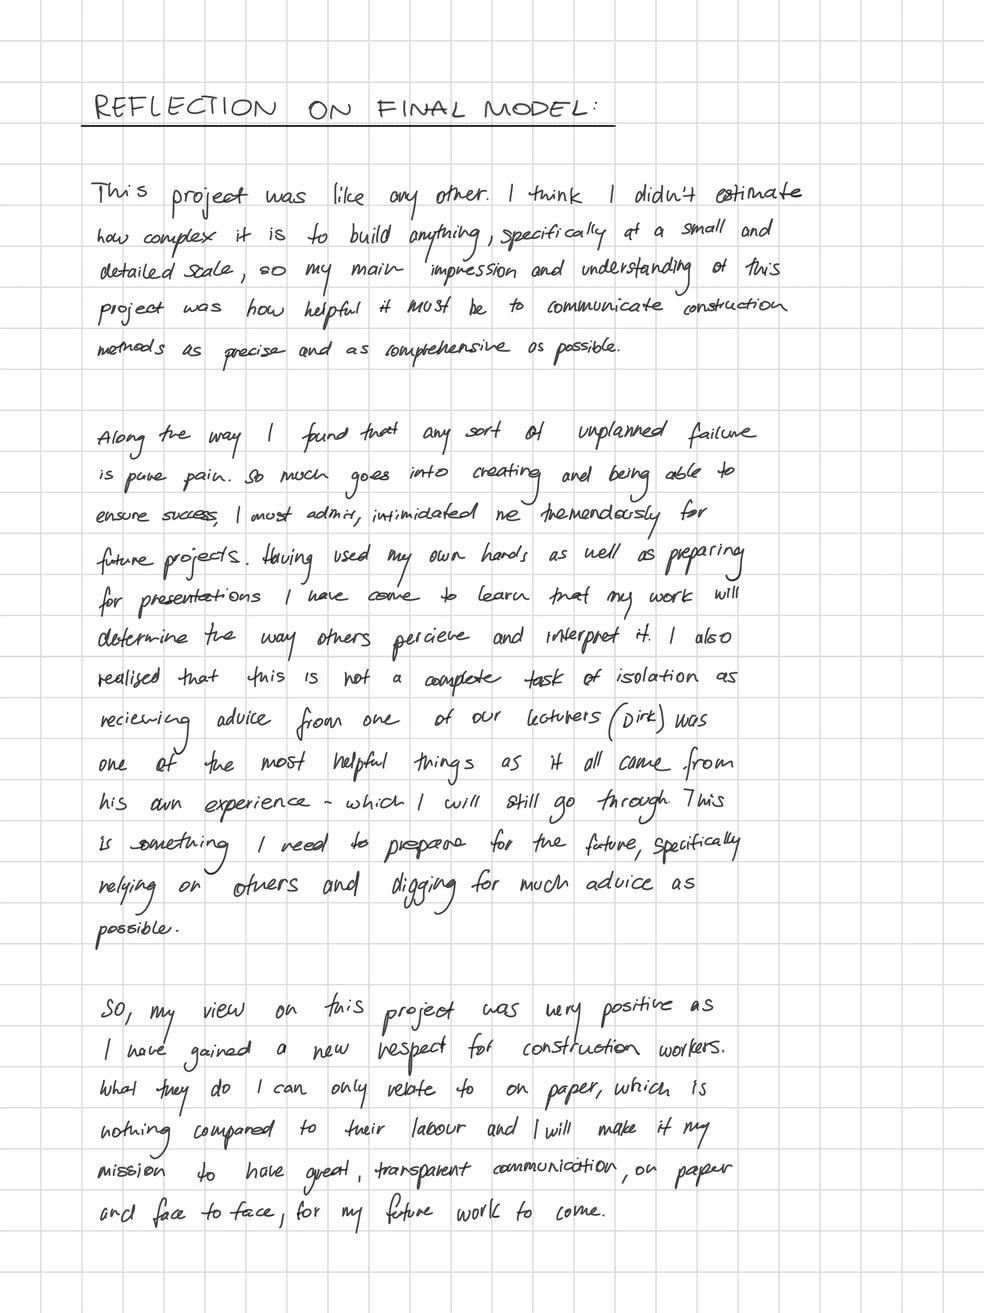 REFLECTION ON FINAL MODEL:
This project was like any other. I think I didn't estimate
how complex it is to build anything, specifically at a small and
detailed scale, so my main impression and understanding of this
project was how helpful it must be to communicate construction
methods as precise and as comprehensive as possible.
Along the way I found that any sort of unplanned failure
is pure pain. So much goes into creating and being able to
ensure success, I must admit, intimidated me tremendously for
future projects. Having used my own hands as well as preparing
for presentations I have come to learn that my work will
determine the way others percieve and interpret it. I also
realised that this is not a complete task of isolation as
recieving advice from one of our lecturers (Dirk) was
one of the most helpful things as it all came from
his own experience - which I will still go through. This
is something I need to prepare for the future, specifically
relying on others and digging for much advice as
possible.
So, my view on this project was very positive as
I have gained a new respect for construction workers.
What they do I can only relate to on paper, which is
nothing compared to their labour and I will make it my
mission to have great, transparent communication, on paper
and face to face, for my future work to come.